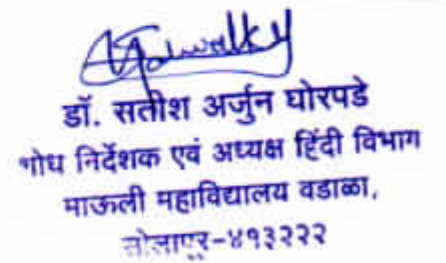 डॉ. सतीश अर्जुन घोरपडे
शोध निर्देशक एवं अध्यक्ष हिंदी विभाग
माऊली महाविद्यालय वडाळा,
सोलापूर-४१३२२२